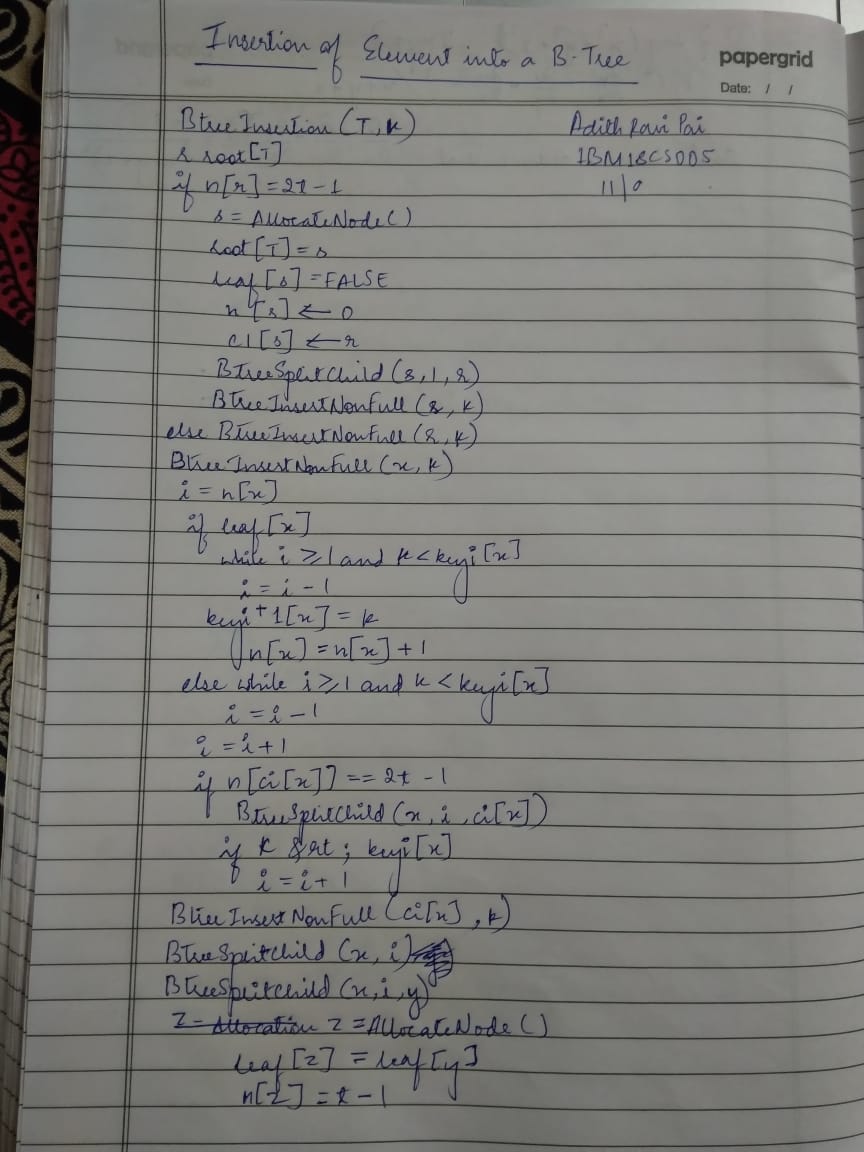 Insertion of Element into a B-Tree
papergrid
Date: / /
Btree Insertion (T, k)
Adith Ravi Pai
1BM18CS005
r root[T]
if n[r] = 2t - 1
s = AllocateNode()
root[T] = s
leaf[s] = FALSE
n[s] ← 0
c1[s] ← r
BTreeSplitChild (s, 1, r)
BTreeInsertNonFull (s, k)
else BTreeInsertNonFull (r, k)
Btree InsertNonFull (x, k)
i = n[x]
if leaf[x]
while i ≥ 1 and k < keyi[x]
i = i - 1
keyi+1[x] = k
n[x] = n[x] + 1
else while i ≥ 1 and k < keyi[x]
i = i - 1
i = i + 1
if n[ci[x]] == 2t - 1
BtreeSplitChild (x, i, ci[x])
if k &rt; keyi[x]
i = i + 1
Btree Insert NonFull (ci[x], k)
BTreeSplitchild (x, i)
BtreeSplitchild (x, i, y)
Z- Allocation z = AllocateNode()
leaf[z] = leaf[y]
n[z] = t - 1